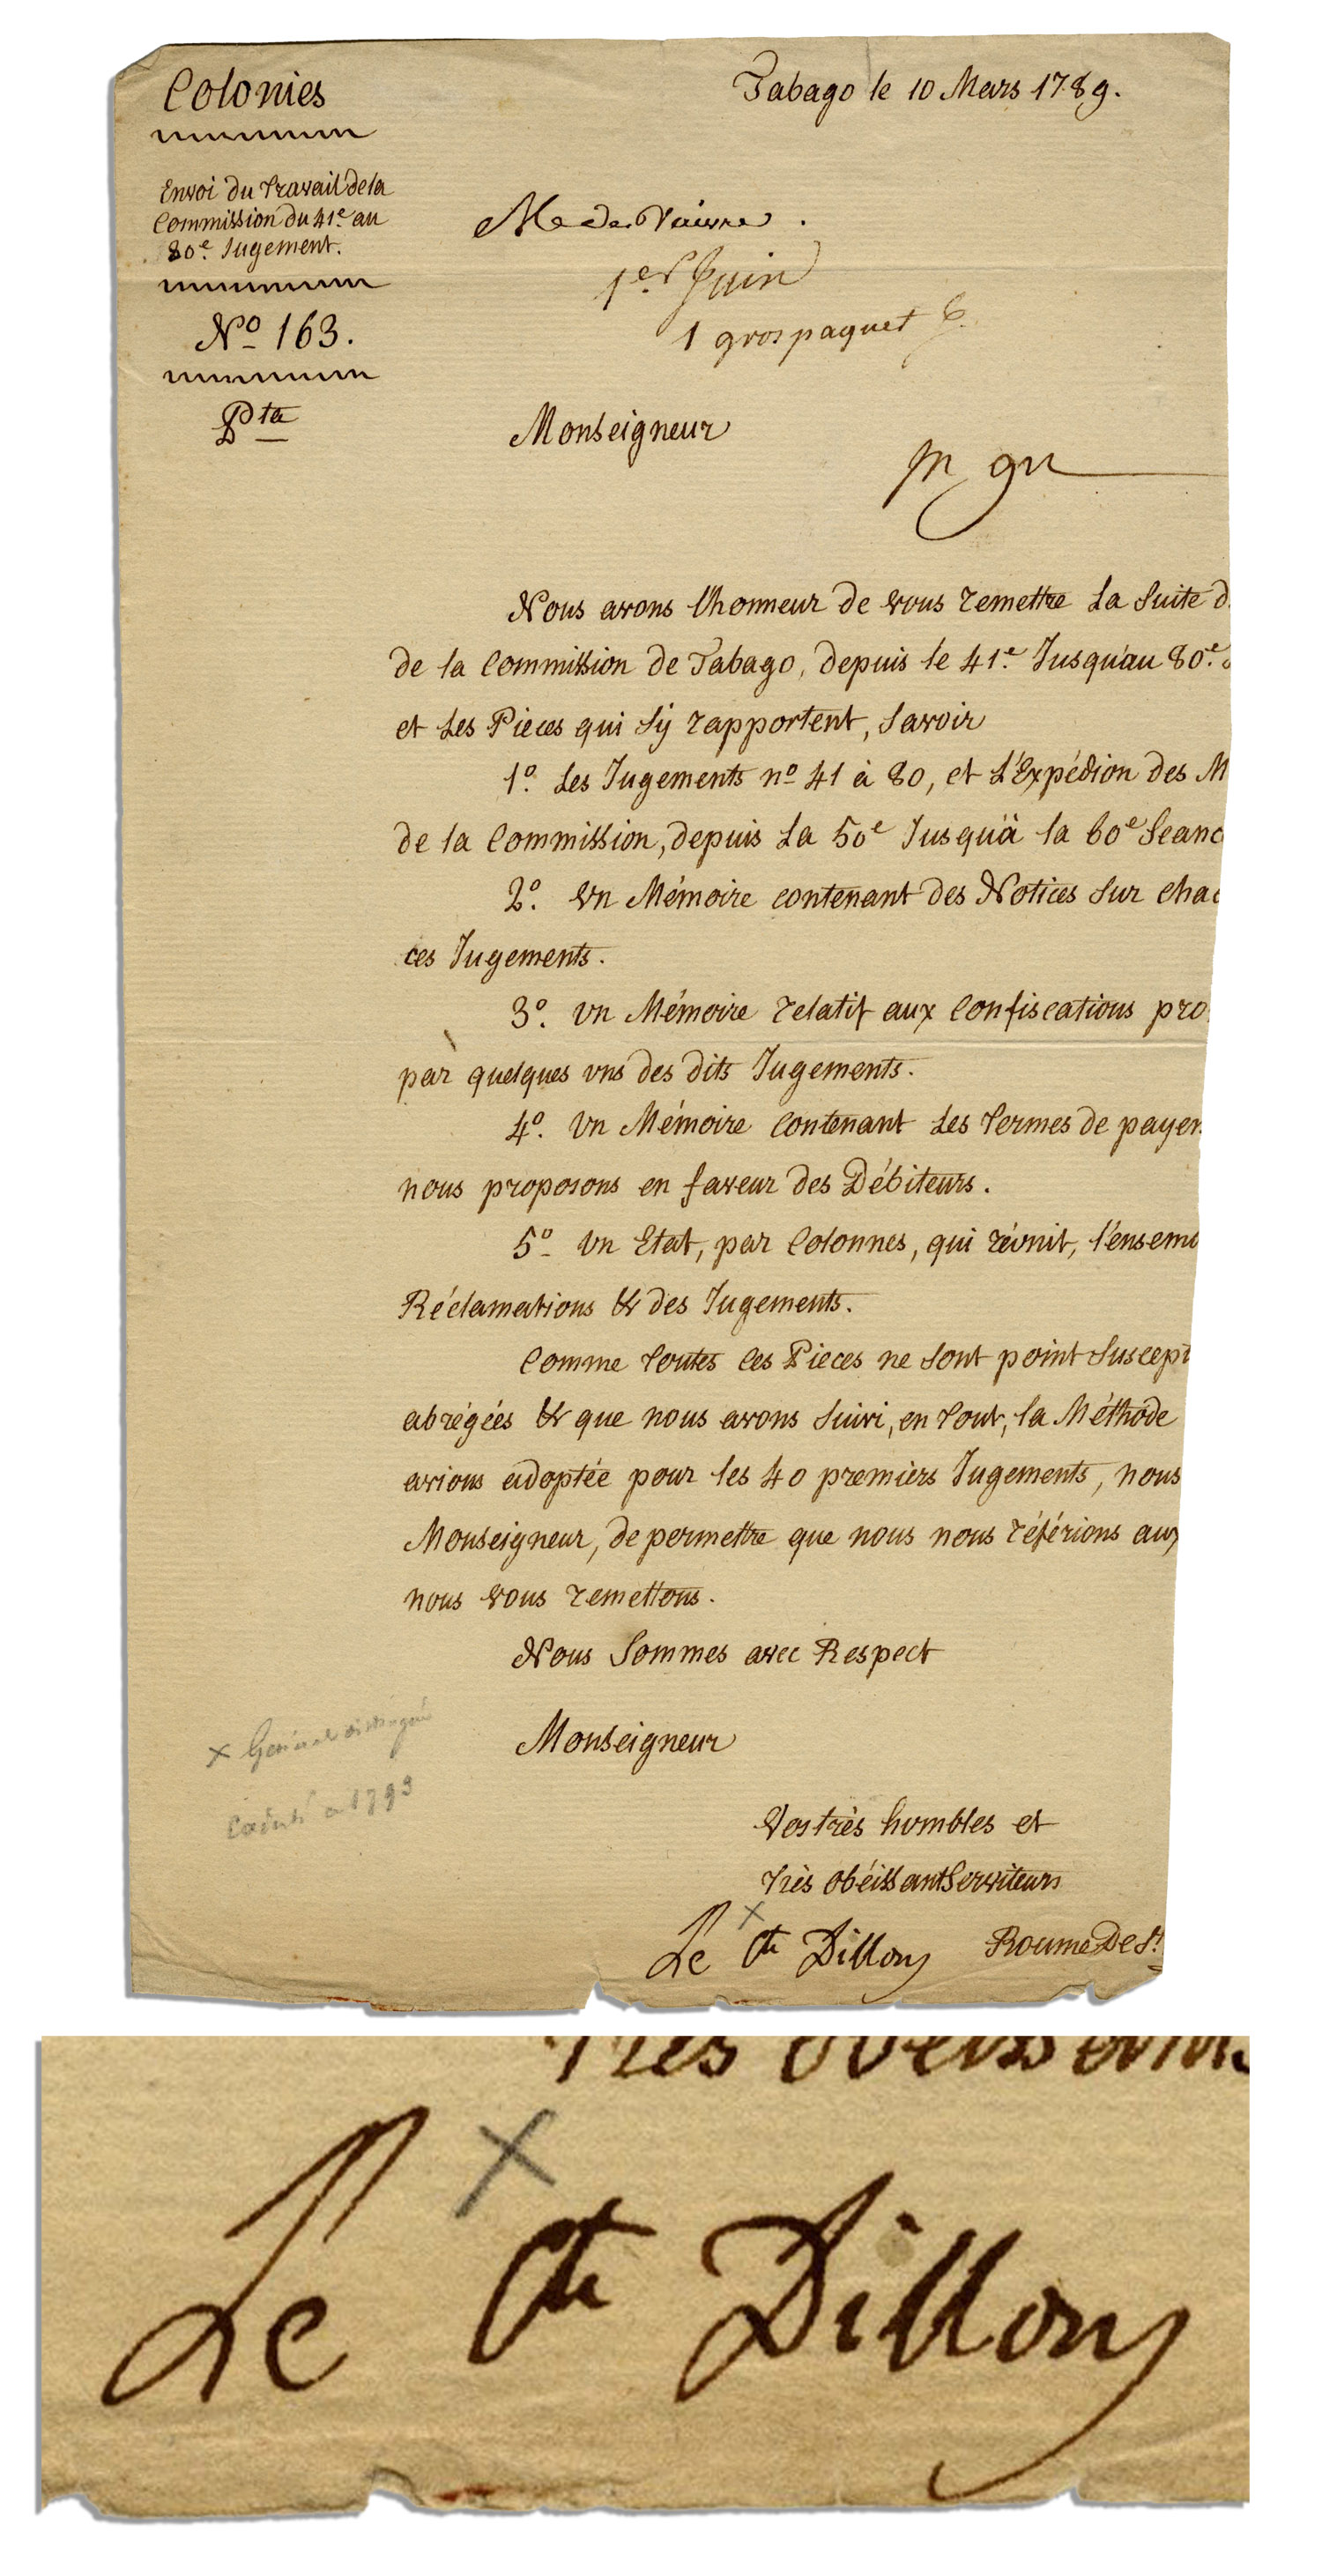 Colonies
Tabago le 10 Mars 1789.
Envoi du Travail dela
Commission du 41e. au
80e. Jugement.
Nº 163.
Pta
M. de Vaivre.
1er. Juin
1 gros paquet
Monseigneur
Nous avons lhonneur de vous remettre La Suite d
de la Commission de Tabago, depuis le 41e. Jusqu'au 80e.
et Les Pieces qui s'ÿ rapportent, Savoir
1º. Les Jugements nº 41 à 80, et L'Expédion des M
de la Commission, depuis La 50e Jusqu'à la 60e Seanc
2º. Un Mémoire contenant des Notices sur chac
ces Jugements.
3º. un Mémoire relatif aux Confiscations pro
par quelques uns des dits Jugements.
4º. Un Mémoire Contenant Les Termes de payem
nous proposons en faveur des Débiteurs.
5º Un Etat, par Colonnes, qui réunit, l'ensemb
Réclamations & des Jugements.
Comme Toutes Ces Pieces ne sont point Suscept
abrégées & que nous avons Suivi, en Tout, la Méthode
avions adoptée pour les 40 premiers Jugements, nous
Monseigneur, de permettre que nous nous référions aux
nous vous remettons.
Nous Sommes avec Respect
x Général distingué
Monseigneur
1793
Vos très humbles et
Très obéissant Serviteurs
x
Le Cte Dillon Roume De St.
Très obéissants
x
Le Cte Dillon